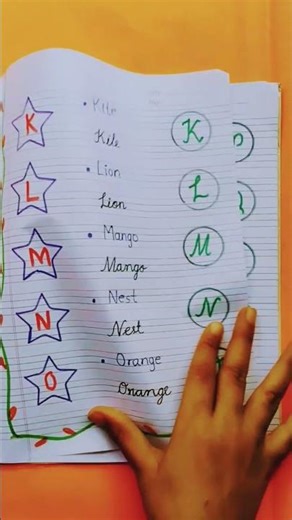 K
• Kite
Kite
K
• Lion
L
Lion
L
• Mango
M
Mango
M
• Nest
N
Nest
N
• Orange
O
Orange